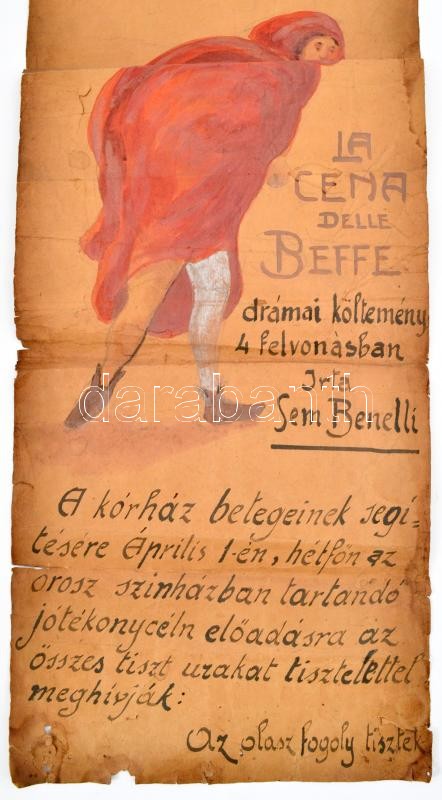 LA
CENA
DELLE
BEFFE
drámai költemény
4 felvonásban
Irta
Sem Benelli
A kórház betegeinek segi=
tésére Április 1-én, hétfőn az
orosz szinházban tartandó
jótékonycéln előadásra az
összes tiszt urakat tisztelettel
meghivják:
Az olasz fogoly tisztek
darabanth